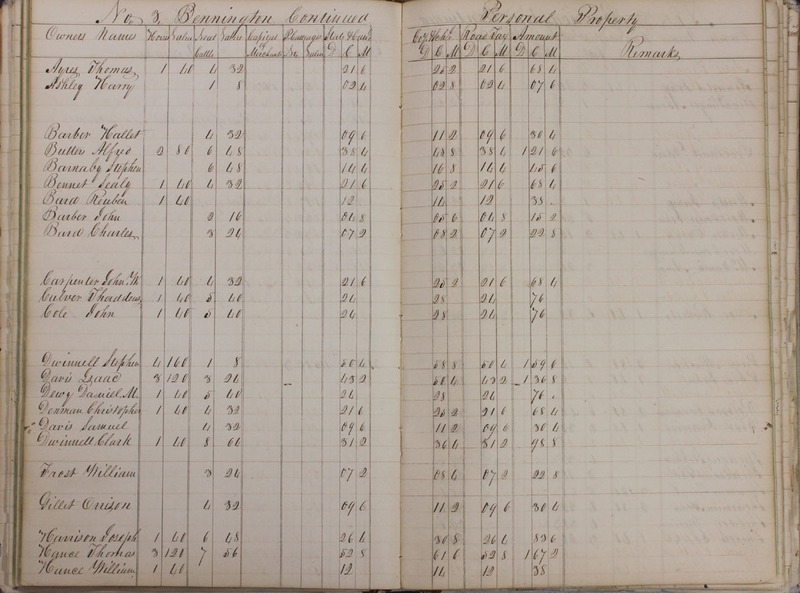 No. 3, Bennington Continued Personal Property
Owners Names Horses Value Neat Cattle Value Capital of Merchants State & Canal D C M Co. & Schl. D C M Road Tax D C M Amount D C M Remarks
Ayres Thomas 1 40 4 32 21 6 25 2 21 6 68 4
Ashley Harry 1 8 02 4 02 8 02 4 07 6
Barber Hallet 4 32 09 6 11 2 09 6 30 4
Butler Alfred 2 80 6 48 38 4 48 8 38 4 1 21 6
Barnaby Stephen 6 48 14 4 16 8 14 4 45 6
Bennet Sealy 1 40 4 32 21 6 25 2 21 6 68 4
Bard Reuben 1 40 12 14 12 38
Barber John 2 16 04 8 05 6 04 8 15 2
Bard Charles 3 24 07 2 08 2 07 2 22 8
Carpenter John W 1 40 4 32 21 6 25 2 21 6 68 4
Culver Thaddeus 1 40 5 40 24 28 24 76
Cole John 1 40 5 40 24 28 24 76
Dwinnell Stephen 4 160 1 8 50 4 58 8 50 4 1 59 6
Davis Isaac 3 120 3 24 43 2 50 4 43 2 1 36 8
Dewy Daniel M. 1 40 5 40 24 28 24 76
Denman Christopher 1 40 4 32 21 6 25 2 21 6 68 4
Davis Samuel 4 32 09 6 11 2 09 6 30 4
Dwinnell Clark 1 40 8 64 31 2 36 4 31 2 98 8
Frost William 3 24 07 2 08 4 07 2 22 8
Gillet Orrison 4 32 09 6 11 2 09 6 30 4
Harrison Joseph 1 40 6 48 26 4 30 8 26 4 83 6
Hance Thomas 3 120 7 56 52 8 61 6 52 8 1 67 2
Hance William 1 40 12 14 12 38